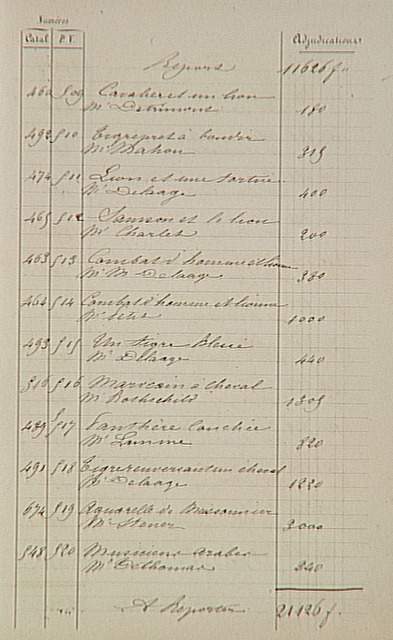 Numéros
Catal P.V. Adjudications
Report 11626 f.
460 509 Cavalier et un lion
Mr Detrimont 180
492 510 Tigre prêt à bondir
Mr Mahon 315
474 511 Lion et une tortue
Mr Delaage 400
465 512 Samson et le lion
Mr Charles 200
463 513 Combat d'homme et lionne
Mr M Delaage 380
464 514 Combat d'homme et lionne
Mr 1000
493 515 Un tigre blessé
Mr Delaage 440
516 516 Marocain à cheval
Mr Rothschild 1305
489 517 Panthère couchée
Mr Lamme 820
491 518 Tigre renversant un cheval
Mr Delaage 1220
674 519 Aquarelle de Meissonnier
Mr 3000
548 520 Musiciens arabes
Mr 240
A Reporter 21126 f.